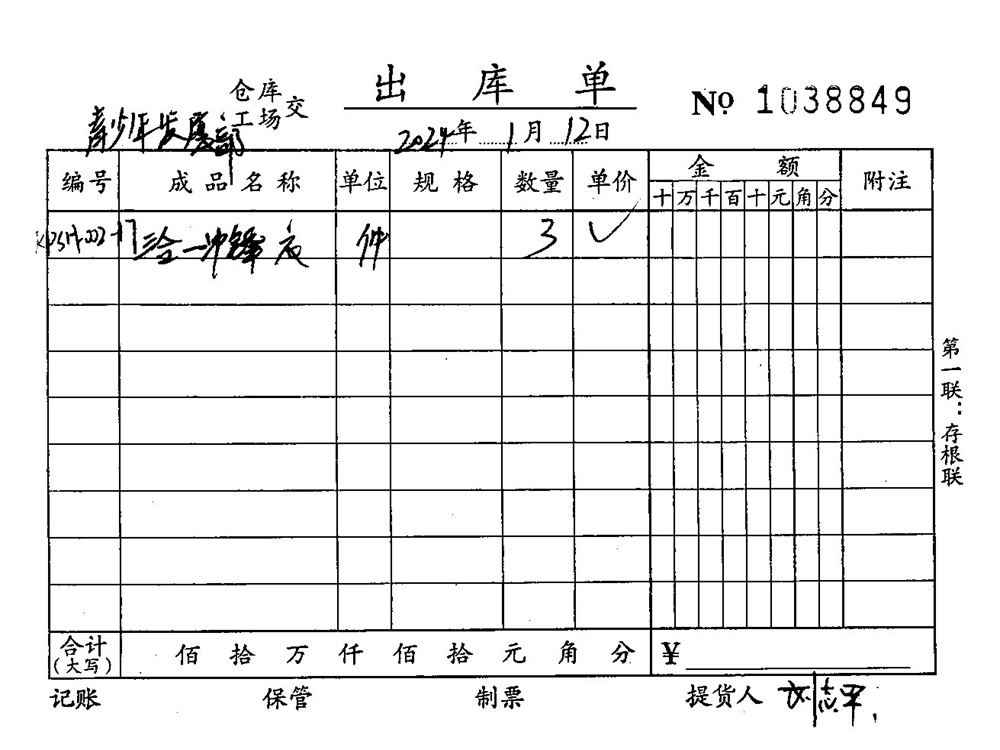 出库单
仓库
工场交
№ 1038849
青少年发展部
2024年1月12日
编号 成品名称 单位 规格 数量 单价 金额 附注
十万千百十元角分
三合一冲锋衣 件 3 ✓
第一联：存根联
合计
(大写) 佰 拾 万 仟 佰 拾 元 角 分 ¥
记账 保管 制票 提货人